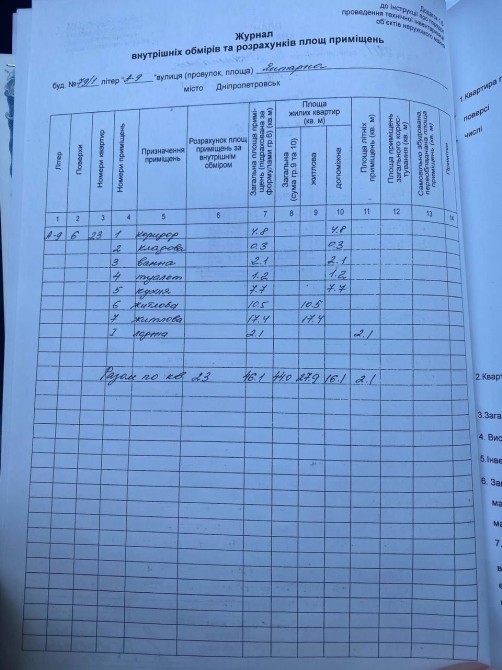 Додаток 6
до Інструкції про порядок
проведення технічної інвентаризації
об'єктів нерухомого майна
Журнал
внутрішніх обмірів та розрахунків площ приміщень
буд. № літер "А-9 "вулиця (провулок, площа) Янтарна
місто Дніпропетровськ
Літер Поверхи Номери квартир Номери приміщень Призначення приміщень Розрахунок площ приміщень за внутрішнім обміром Загальна площа приміщень (підрахована за формулами гр 6) (кв.м) Площа жилих квартир (кв. м) Загальна (сума гр.9 та 10) житлова допоміжна Площа літніх приміщень (кв. м) Площа приміщень загального користування (кв. м) Самовільно збудована
1 2 3 4 5 6 7 8 9 10 11 12 13 14
А-9 6 23 1 коридор 4.8 4.8
2 кладова 0.3 0.3
3 ванна 2.1 2.1
4 туалет 1.2 1.2
5 кухня 7.7 7.7
6 житлова 10.5 10.5
7 житлова 17.4 17.4
I лоджа 2.1 2.1
Разом по кв. 23 46.1 44.0 27.9 16.1 2.1
1.Квартира
поверсі
числі
2.Кварт
3.Зага
4. Вис
5.Інве
6. Заг
ма
ма
7.